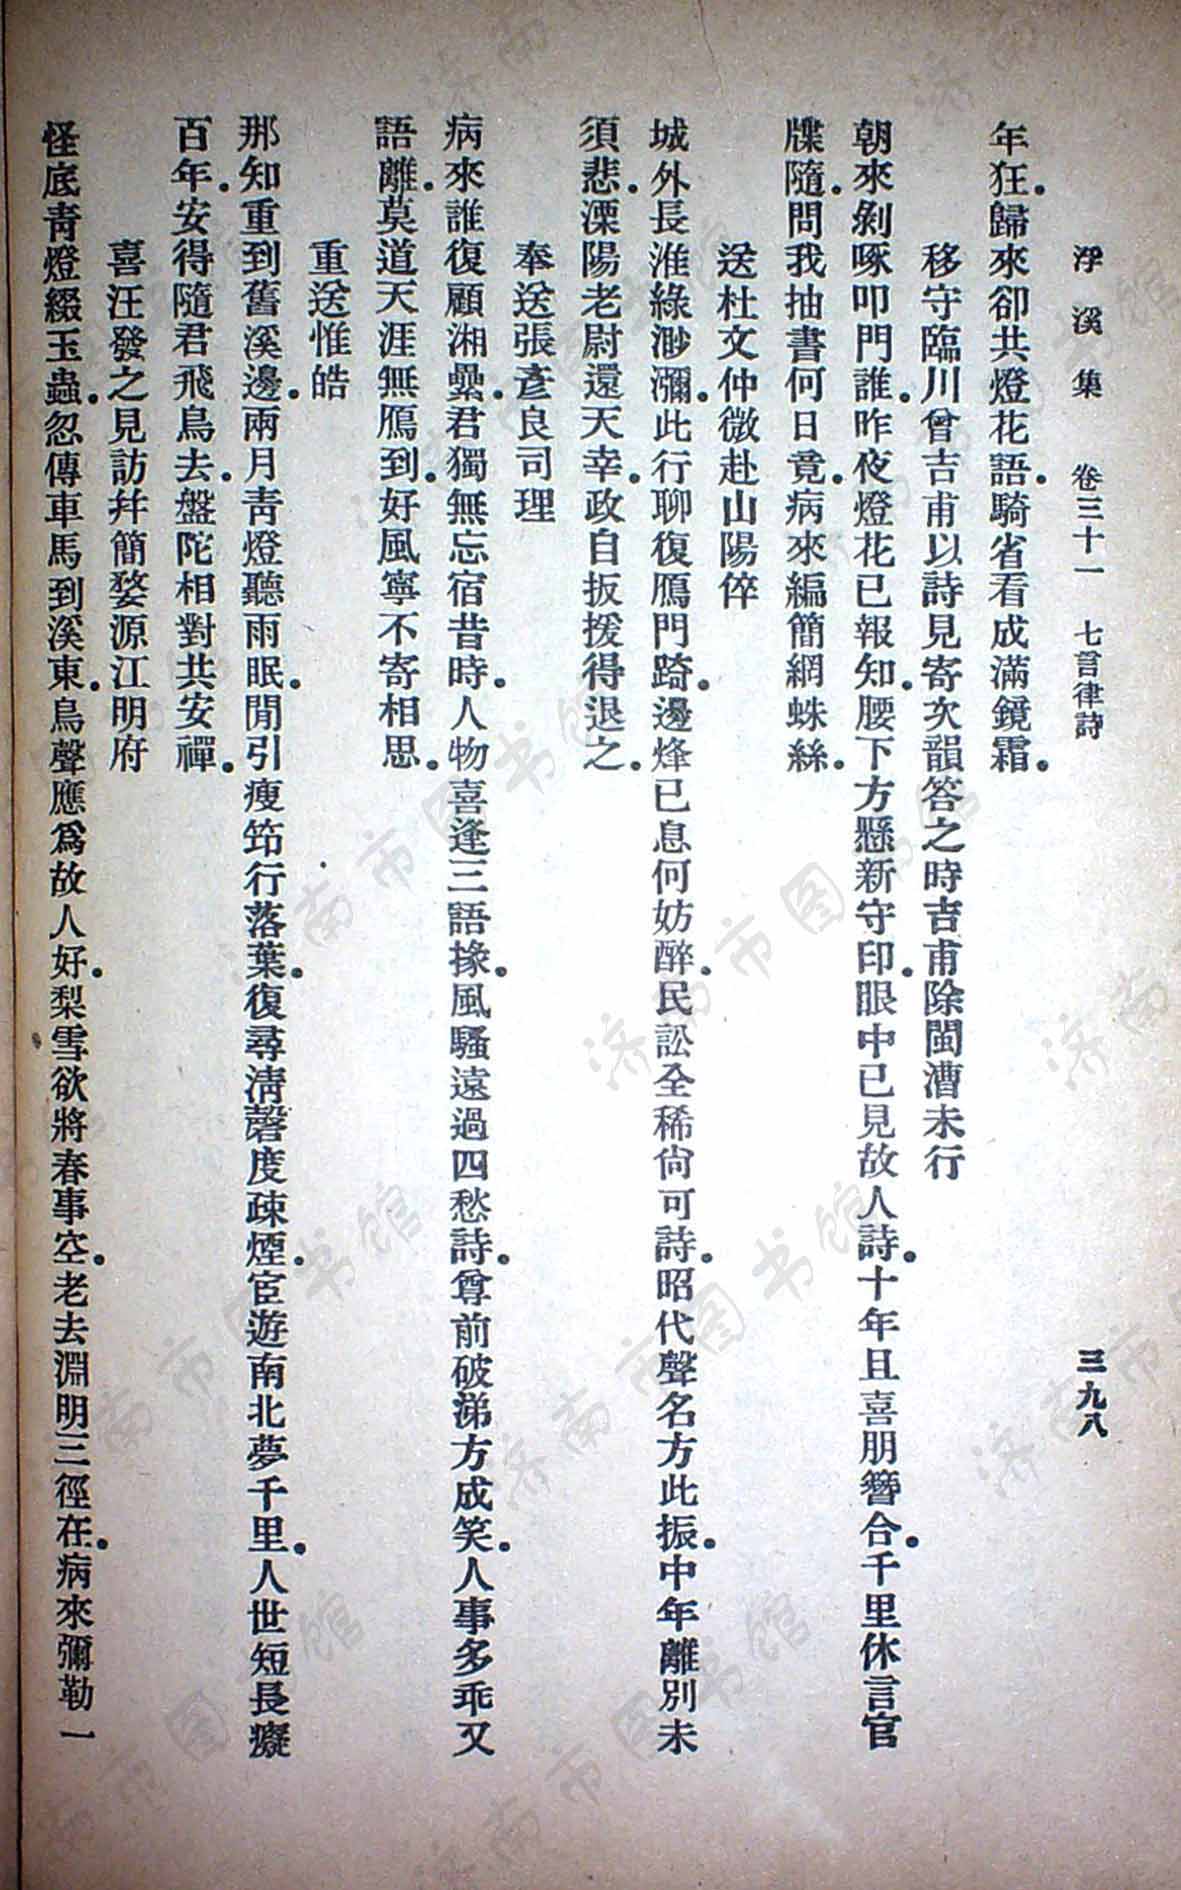 浮溪集　卷三十一　七言律詩　三九八
年狂。歸來卻共燈花語。騎省看成滿鏡霜。
移守臨川曾吉甫以詩見寄次韻答之時吉甫除閩漕未行
朝來剝啄叩門誰。昨夜燈花已報知。腰下方懸新守印。眼中已見故人詩。十年且喜朋簪合。千里休言官
牒隨。問我抽書何日竟。病來編簡網蛛絲。
送杜文仲微赴山陽倅
城外長淮綠渺瀰。此行聊復鴈門踦。邊烽已息何妨醉。民訟全稀尙可詩。昭代聲名方此振。中年離別未
須悲。溧陽老尉還天幸。政自扳援得退之。
奉送張彥良司理
病來誰復顧湘纍。君獨無忘宿昔時。人物喜逢三語掾。風騷遠過四愁詩。尊前破涕方成笑。人事多乖又
語離。莫道天涯無鴈到。好風寧不寄相思。
重送惟皓
那知重到舊溪邊。兩月靑燈聽雨眠。閒引瘦筇行落葉。復尋淸磬度疎煙。宦遊南北夢千里。人世短長癡
百年。安得隨君飛鳥去。盤陀相對共安禪。
喜汪發之見訪幷簡婺源江明府
怪底靑燈綴玉蟲。忽傳車馬到溪東。鳥聲應爲故人好。梨雪欲將春事空。老去淵明三徑在。病來彌勒一
济南市图书馆